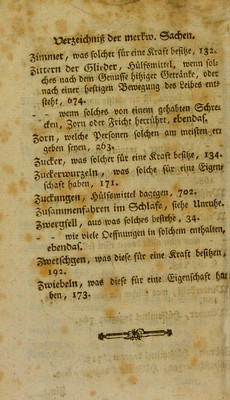 Verzeichniß der merkw. Sachen.
Zimmet, was solcher für eine Kraft besitze, 132.
Zittern der Glieder, Hülfsmittel, wenn sol-
ches nach dem Genusse hitziger Getränke, oder
nach einer heftigen Bewegung des Leibes ent-
steht, 674.
- - wenn solches von einem gehabten Schre-
cken, Zorn oder Frieht herrührt, ebendas.
Zorn, welche Personen solchen am meisten er-
geben seyen, 263.
Zucker, was solcher für eine Kraft besitze, 134.
Zuckerwurzeln, was solche für eine Eigen-
schaft haben, 171.
Zuckungen, Hülfsmittel dagegen, 702.
Zusammenfahren im Schlafe, siehe Unruhe.
Zwergfell, aus was solches bestehe, 34.
- - wie viele Oeffnungen in solchem enthalten,
ebendas.
Zwetschgen, was diese für eine Kraft besitzen,
192.
Zwiebeln, was diese für eine Eigenschaft ha-
ben, 173.